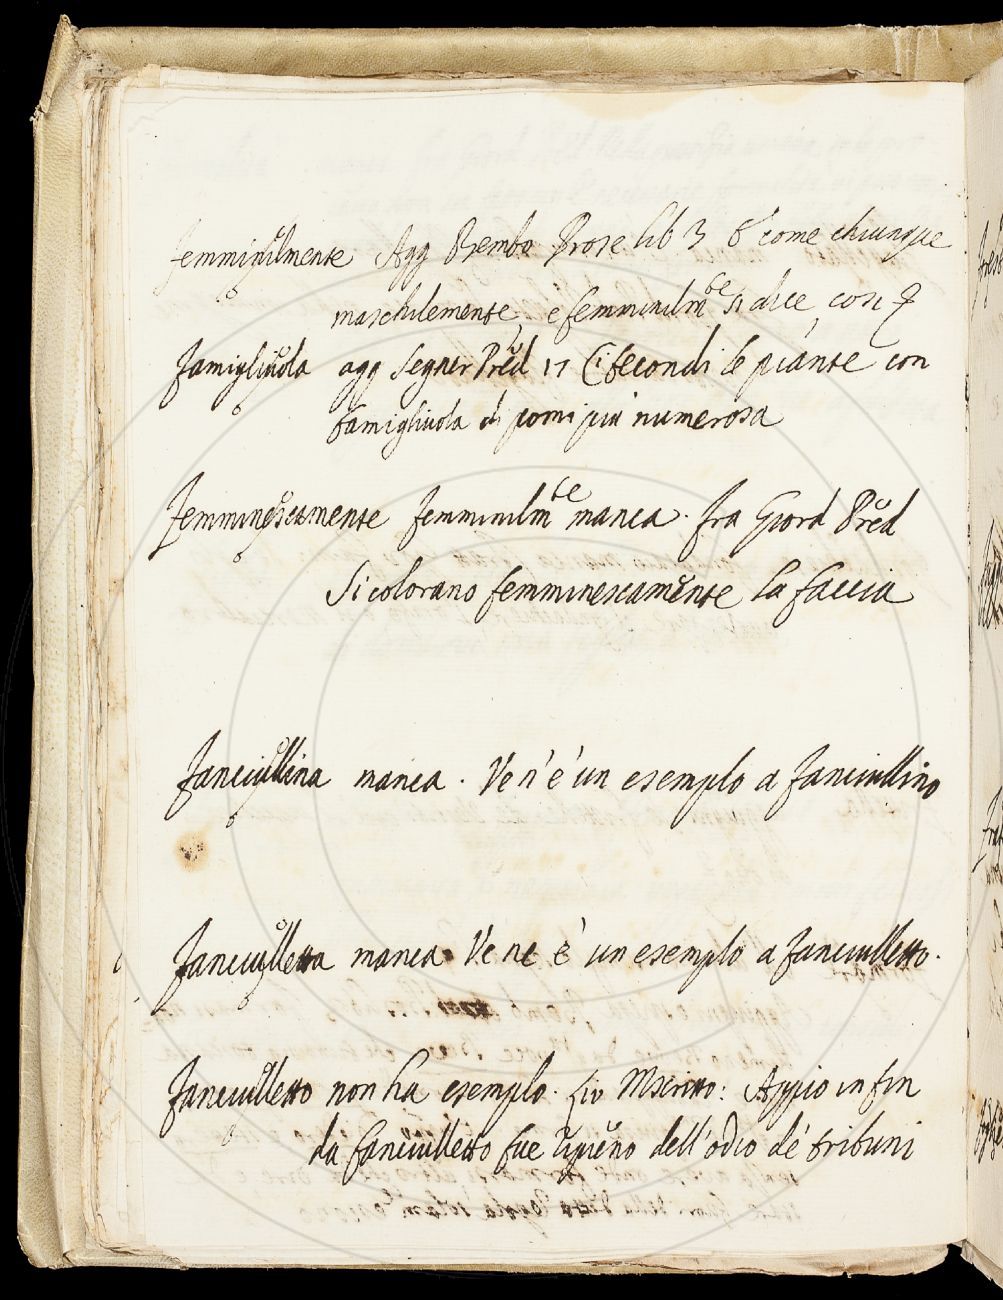 Femminilmente Agg Bembo Prose lib 3 E come chiunque
maschilemente, e femminilmte si dice, così
Famigliuola agg Segner Pred 17 Ci fecondi le piante con
famigliuola di pomi più numerosa
Femminescamente Femminilmte manca. Fra Giord Pred
Si colorano femminescamente la faccia
Fanciullina manca. Ve n'è un esemplo a Fanciullino
Fanciulletta manca. Ve ne è un esemplo a Fanciulletto.
Fanciulletto non ha esemplo. Liv Mscritto: Appio in fin
da fanciulletto fue ripieno dell'odio de' tribuni